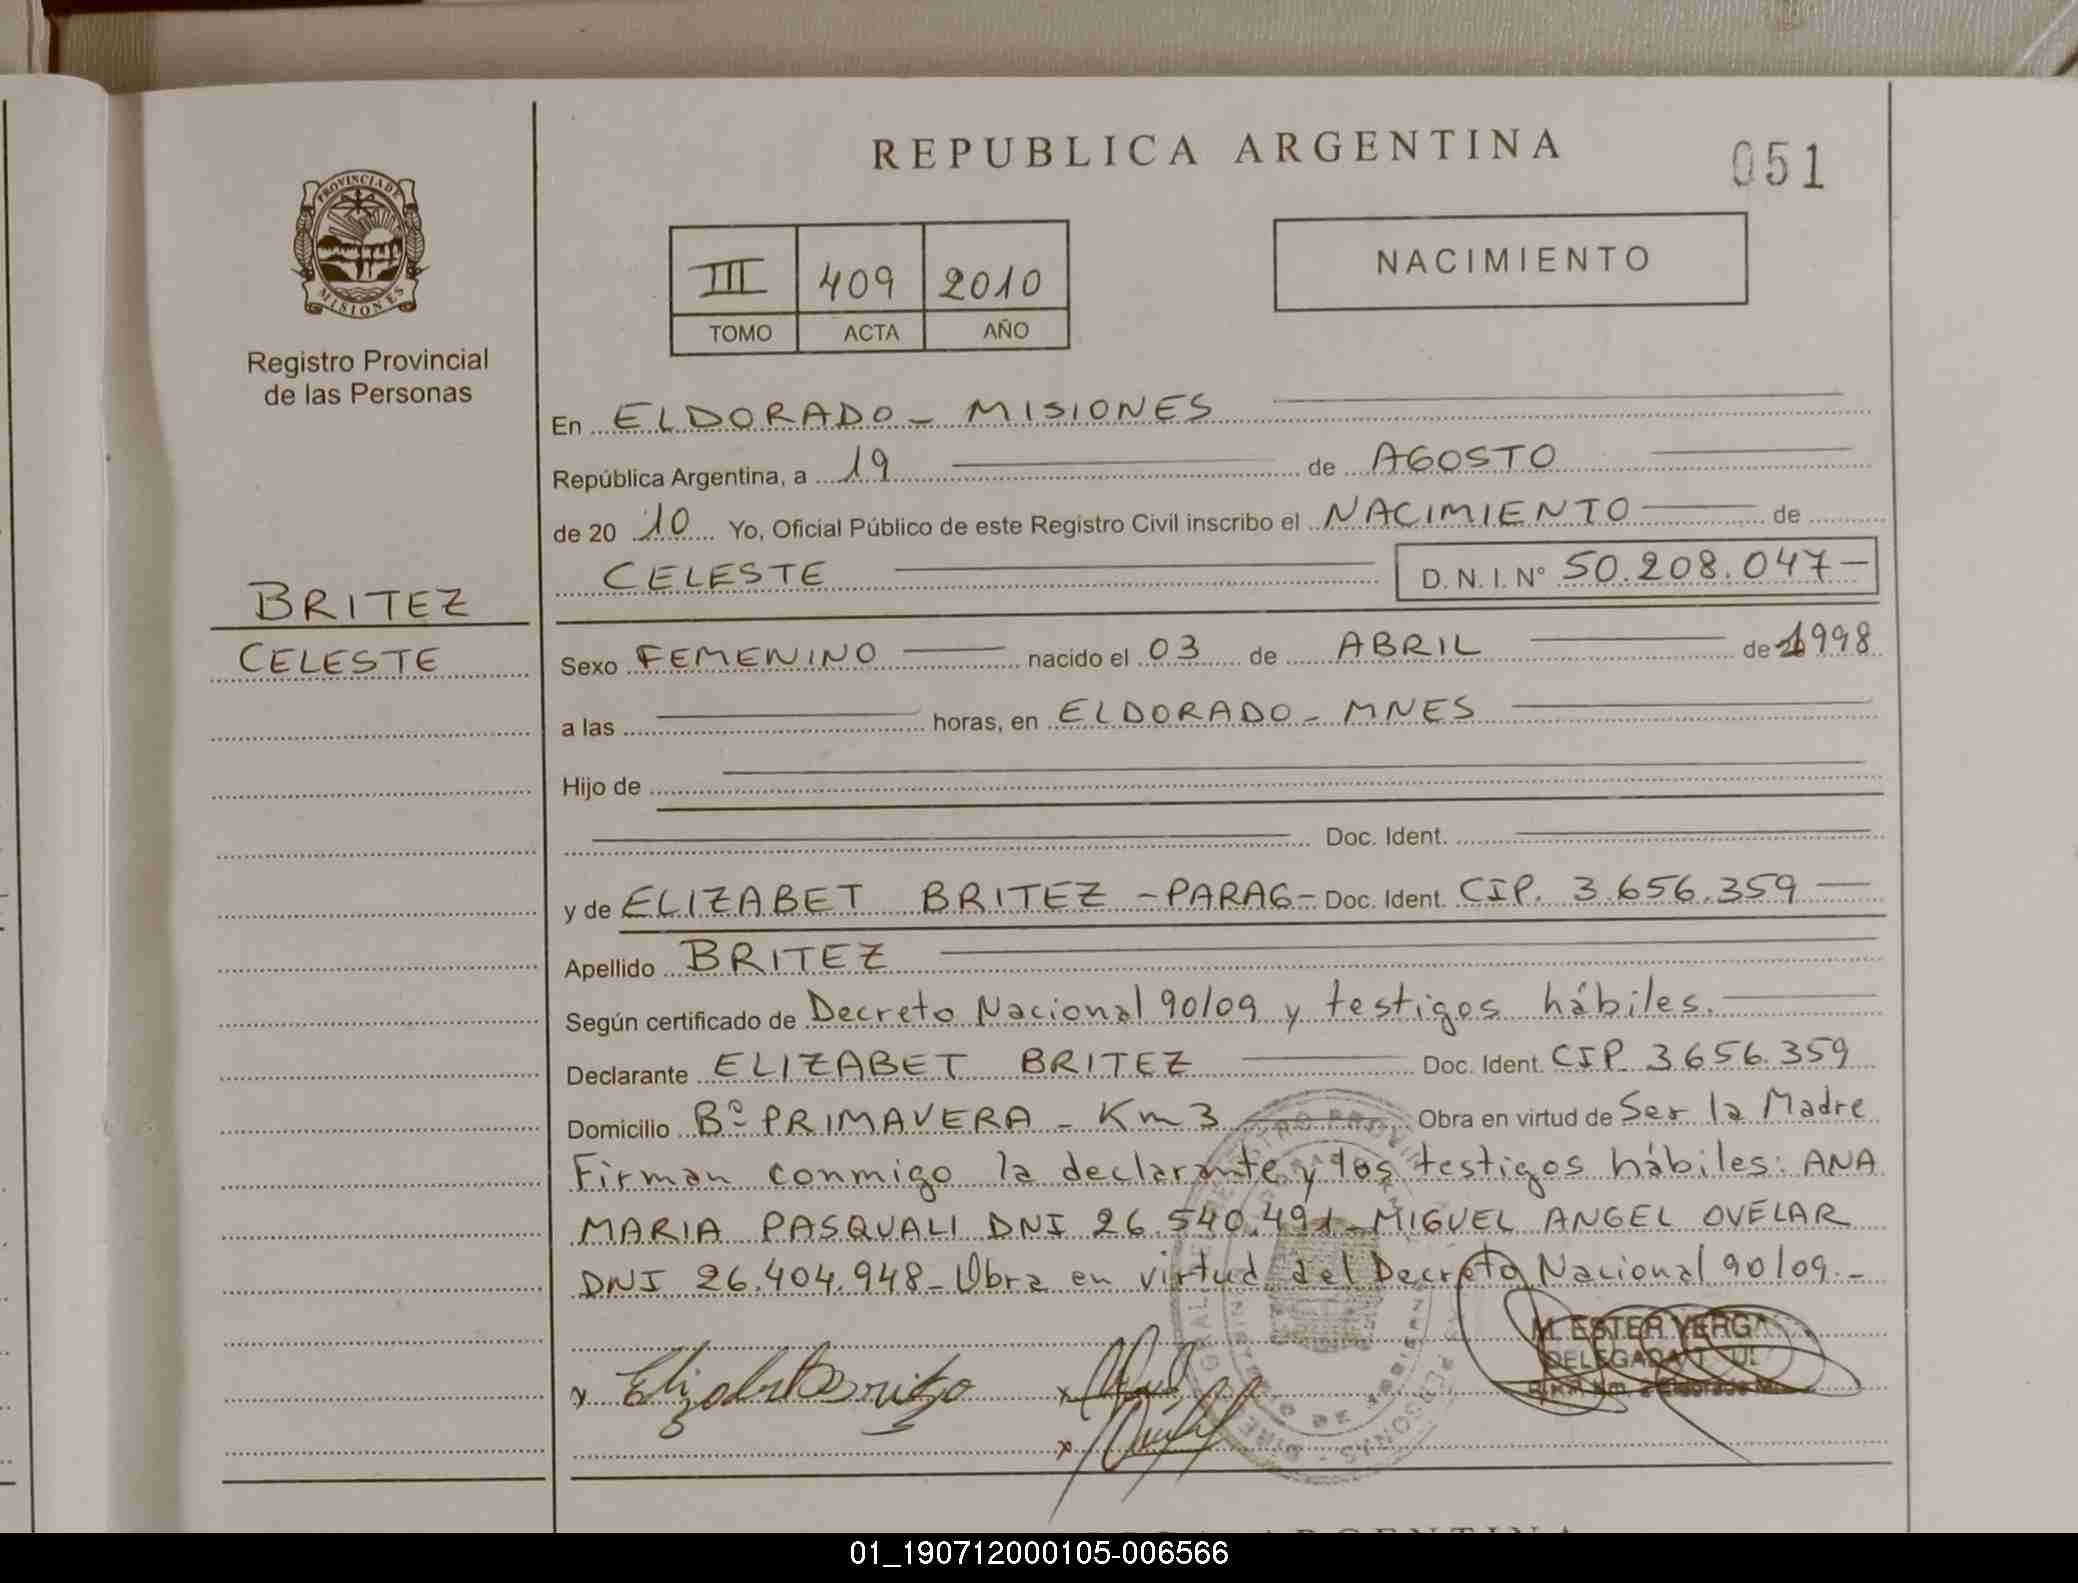 REPUBLICA ARGENTINA
051
PROVINCIA DE
MISIONES
Registro Provincial
de las Personas
III 409 2010
TOMO ACTA AÑO
NACIMIENTO
En ELDORADO - MISIONES
República Argentina, a 19 de AGOSTO
de 20 10 Yo, Oficial Público de este Registro Civil inscribo el NACIMIENTO de
CELESTE D. N. I. N° 50.208.047-
BRITEZ
CELESTE
Sexo FEMENINO nacido el 03 de ABRIL de 1998
a las horas, en ELDORADO - MNES
Hijo de
Doc. Ident.
y de ELIZABET BRITEZ - PARAG - Doc. Ident. CIP. 3.656.359
Apellido BRITEZ
Según certificado de Decreto Nacional 90/09 y testigos hábiles.
Declarante ELIZABET BRITEZ Doc. Ident. CIP 3.656.359
Domicilio Bº PRIMAVERA - Km 3 Obra en virtud de Ser la Madre
Firman conmigo la declarante y los testigos hábiles: ANA
MARIA PASQUALI DNI 26.540.491 - MIGUEL ANGEL OVELAR
DNI 26.404.948 - Obra en virtud del Decreto Nacional 90/09.-
M. ESTER
DELEGADA
x Elizabet Britez x
x
01_190712000105-006566